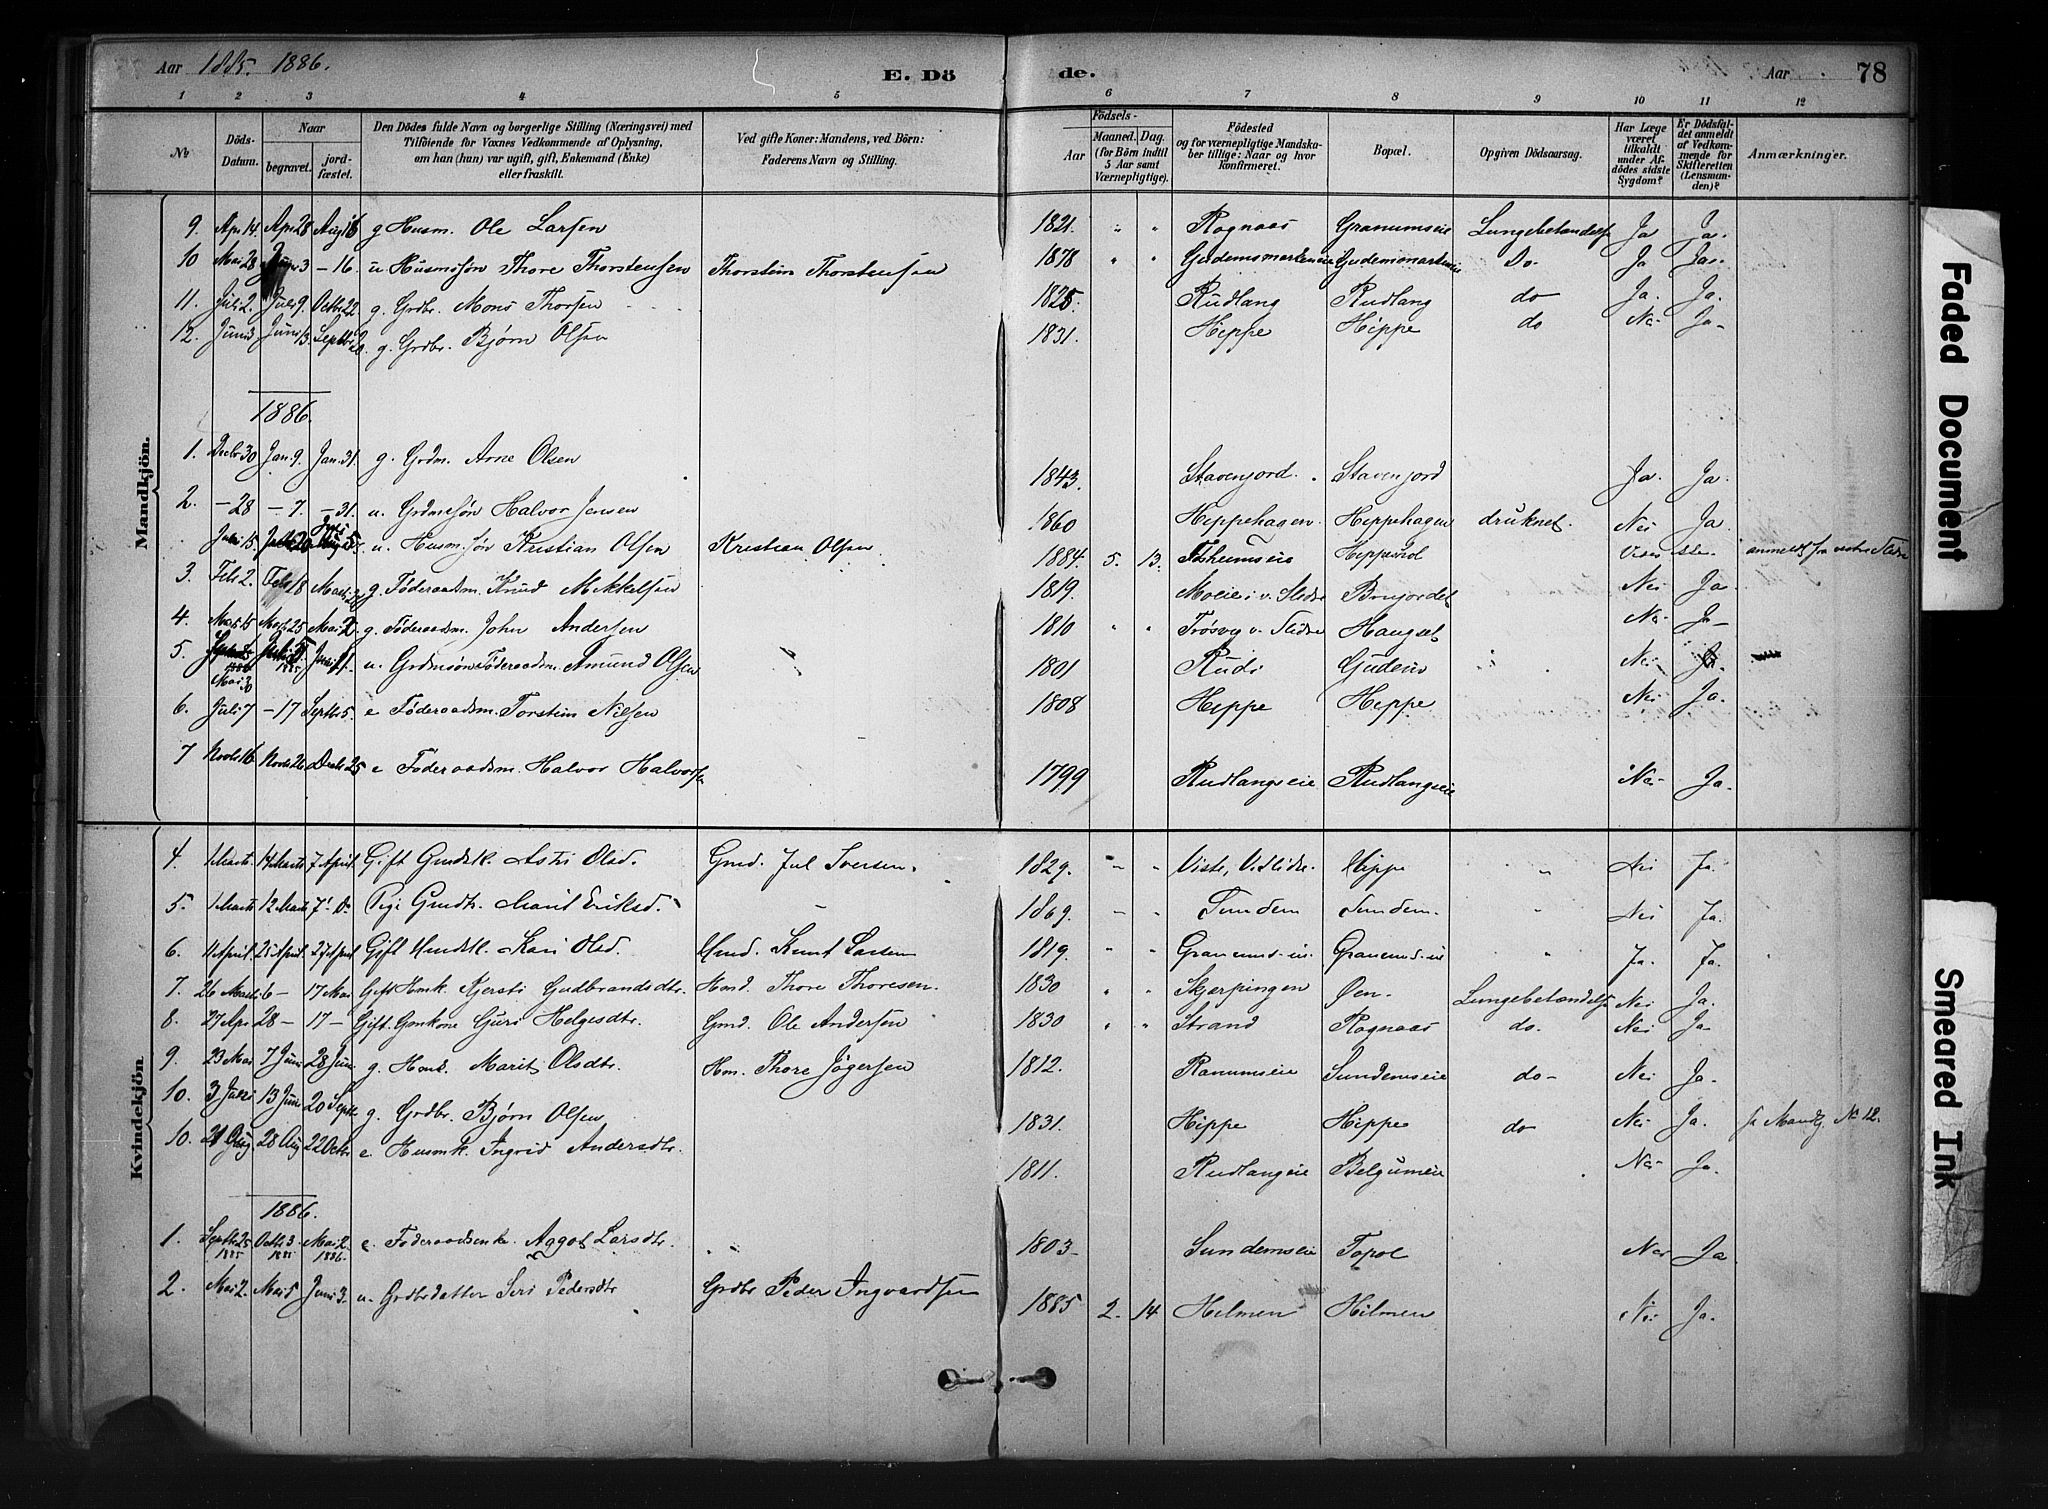 Aar 1885. 1886. E. Dö de. Aar . 78
1 2 3 4 5 6 7 8 9 10 11 12
№ Döds-Datum. Naar begravet. jordfæstet. Den Dödes fulde Navn og borgerlige Stilling (Næringsvei) med Tilföiende for Voxnes Vedkommende af Oplysning, om han (hun) var ugift, gift, Enkemand (Enke) eller fraskilt. Ved gifte Koner: Mandens, ved Börn: Faderens Navn og Stilling. Födsels- Aar Maaned. Dag. (for Börn indtil 5 Aar samt Værnepligtige). Födested og for værnepligtige Mandskaber tillige: Naar og hvor konfirmeret. Bopæl. Opgiven Dödsaarsag. Har Læge været tilkaldt under Afdödes sidste Sygdom? Er Dödsfaldet anmeldt af Vedkommende for Skifteretten (Lensmanden)? Anmærkninger.
Mandkjön.
9. Apr 14. Apr 28 Aug 16 g Husm. Ole Larsen 1821. " " Rognaas Granumseie Lungebetændelse Ja Ja.
10 Mai 28. Juni 3 – 16. u Husmsøn Thore Thorstensen Thorstein Thorstensen 1878 " " Gudemsmarteneie Gudemsmarteneie Do Ja Ja.
11. Juli 2. Juli 9. Octbr 22 g. Grdbr. Mons Thorsen 1825. Rudlang Rudlang do Ja. Ja.
12. Juni 3 Juni 13. Septbr 20. g. Grdbr. Bjørn Olsen 1831. Hippe Hippe do Nei Ja–
1886.
1. Decbr 30 Jan. 9. Jan. 31. g. Grdm. Arne Olsen 1843. Stavenjord. Stavenjord Ja. Ja.
2. – 28 – 7. – 31. u. Grdmsøn Halvor Jensen 1860 Hippehagen Hippehagen druknet. Nei Ja.
Juli 15. Aug 5. u. Husm. søn Kristian Olsen Kristian Olsen 1884. 5. 13. anmeldt fra vestre Slidre
3. Feb 2. Feb 18 Marts g. Föderaadsm. Knud Mikkelsen 1819. Moeie i v. Slidre Brujordet Nei Ja
4. Marts 15 Marts 25 Mai 2. g. Föderaadsm. John Andersen 1810 " " Trøsvig v. Slidre Haugset Nei Ja–
5. 1885 Mai 30 1885 Juni u. Grdmsøn Föderaadsm. Amund Olsen 1801 Rudi Gudem Nei Ja
6. Juli 7 – 17 Septbr 5. e Föderaadsm. Torstein Nilsen 1808 Hippe Hippe Nei Ja.
7 Novbr 16 Novbr 26 Decbr 25 e Föderaadsm. Halvor Halvorsen 1799 Rudlangseie Rudlangseie Nei Ja.
Kvindekjön.
4. 1 Marts. 14 Marts 7 April. Gift Gmdsk. Astri Olsd. Gmd. Jul Iversen. 1829. " " Viste, V. Slidre. Hippe " Nei Ja.
5. 1 Marts 12 Marts 7' Do Pige Gmdtr. Marit Eriksd. – 1869. " " Sundem Sundem. " Nei Ja.
6. 11 April. 25 April. 27 April Gift Hmdsk. Kari Olsd. Hmd. Knut Larsen 1819. " " Granums-eie. Granums-eie " Ja. Ja.
7. 26 Marts 6 – 17 Mai Gift Hmk. Kjersti Gudbrandsdtr. Hmd. Thore Thoresen. 1830 " " Skjærpingen Øen. Lungebetændelse Nei Ja.
8. 27 Apr 28 – 17 – Gift Gmkone Guri Helgesdtr. Gmd. Ole Andersen 1830 " " Strand Rognaas do. Nei Ja
9. 23 Mai 7 Juni 28 Juni g. Honk. Marit Olsdtr. Hm. Thore Jøgersen 1812. Ranumseie Sundemseie do– Nei Ja.
10. 3 Juni 13 Juni 20 Septbr g. Grdbr. Bjørn Olsen 1831. Hippe Hippe do Nei Ja. se Mandkj. No 12.
10. 21 Aug 28 Aug 22 Octbr e. Husmk. Ingrid Andersdtr. 1811. Rudlangeie Belgumeie Nei Ja.
1886.
1. Septbr 25 1885 Octbr 3. 1885. Mai 2. 1886. e. Föderaadsenke Aagot Larsdtr. 1803– Sundemseie Topol Nei Ja
2. Mai 2. Mai 5 Juni 3. u– Grdbrdatter Siri Pedersdtr Grdbr Peder Ingvardsen 1885 2. 14 Hilmen Hilmen Nei Ja.
Faded Document
Smeared Ink